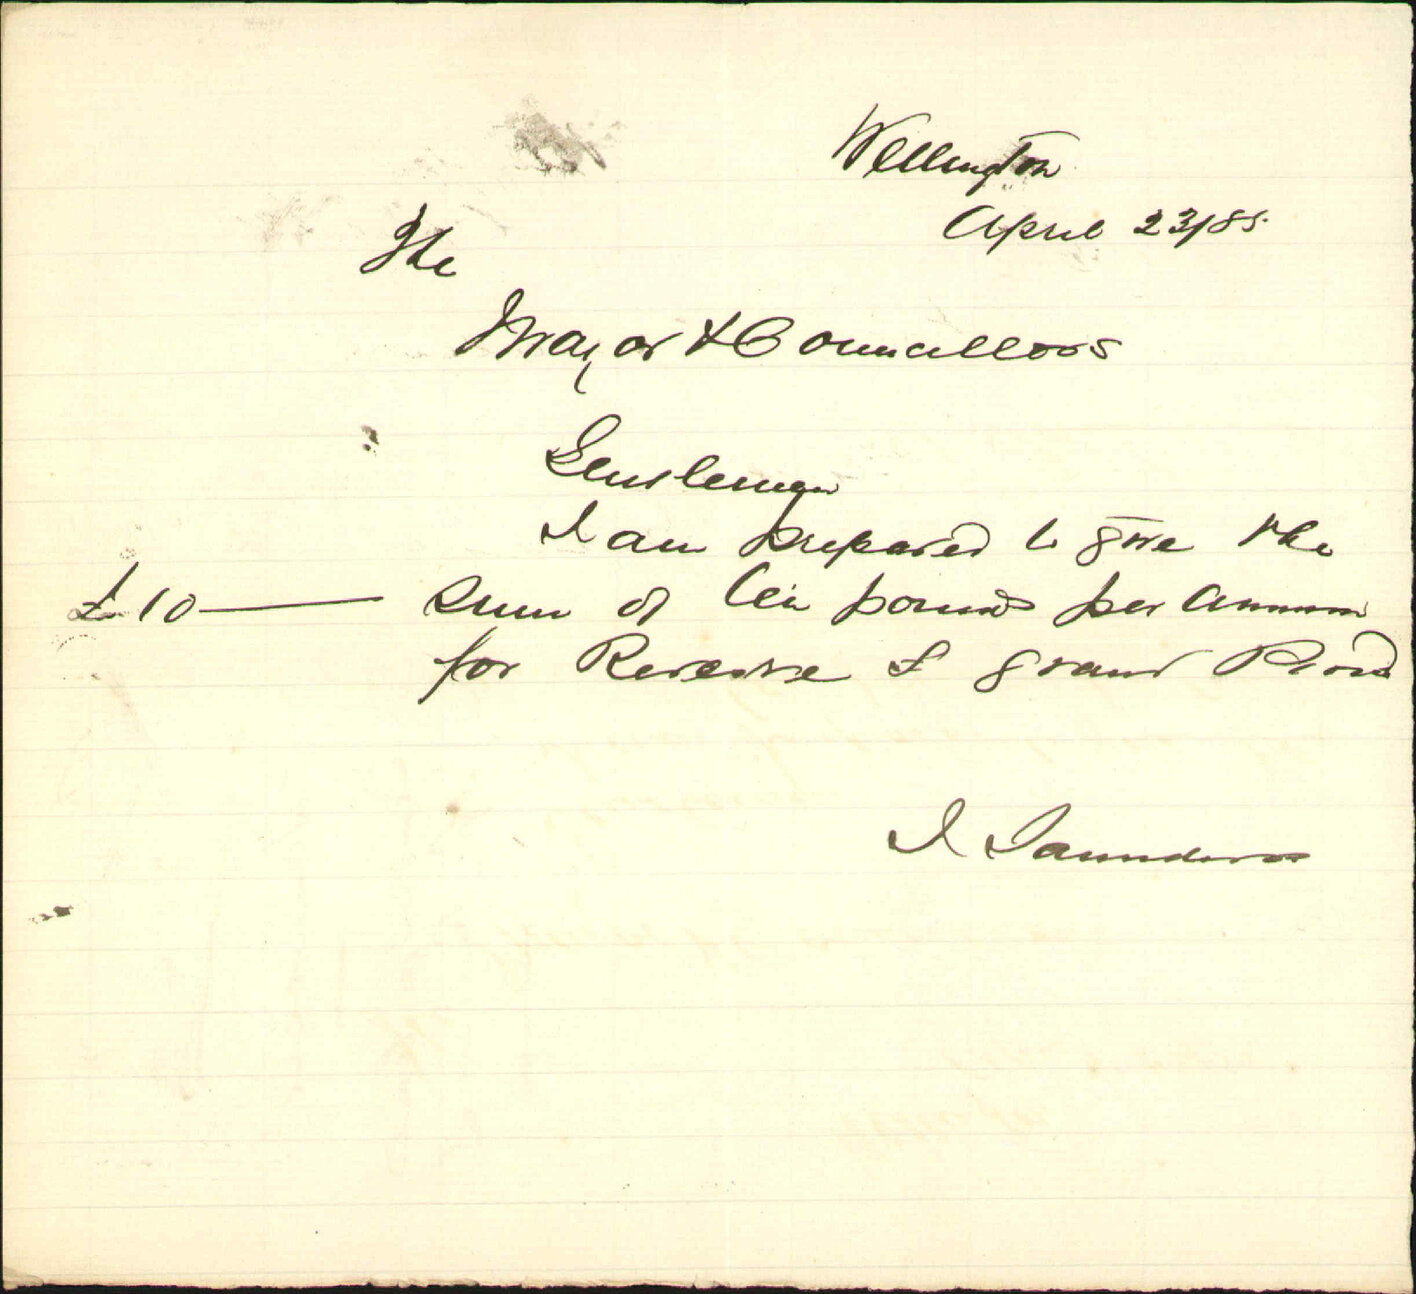 Wellington
April 23/85.
The
Mayor & Councillors
Gentleman
I am prepared to give the
£10 — Sum of Ten pounds per Annum
for Reserve F grant Road
I Saunders